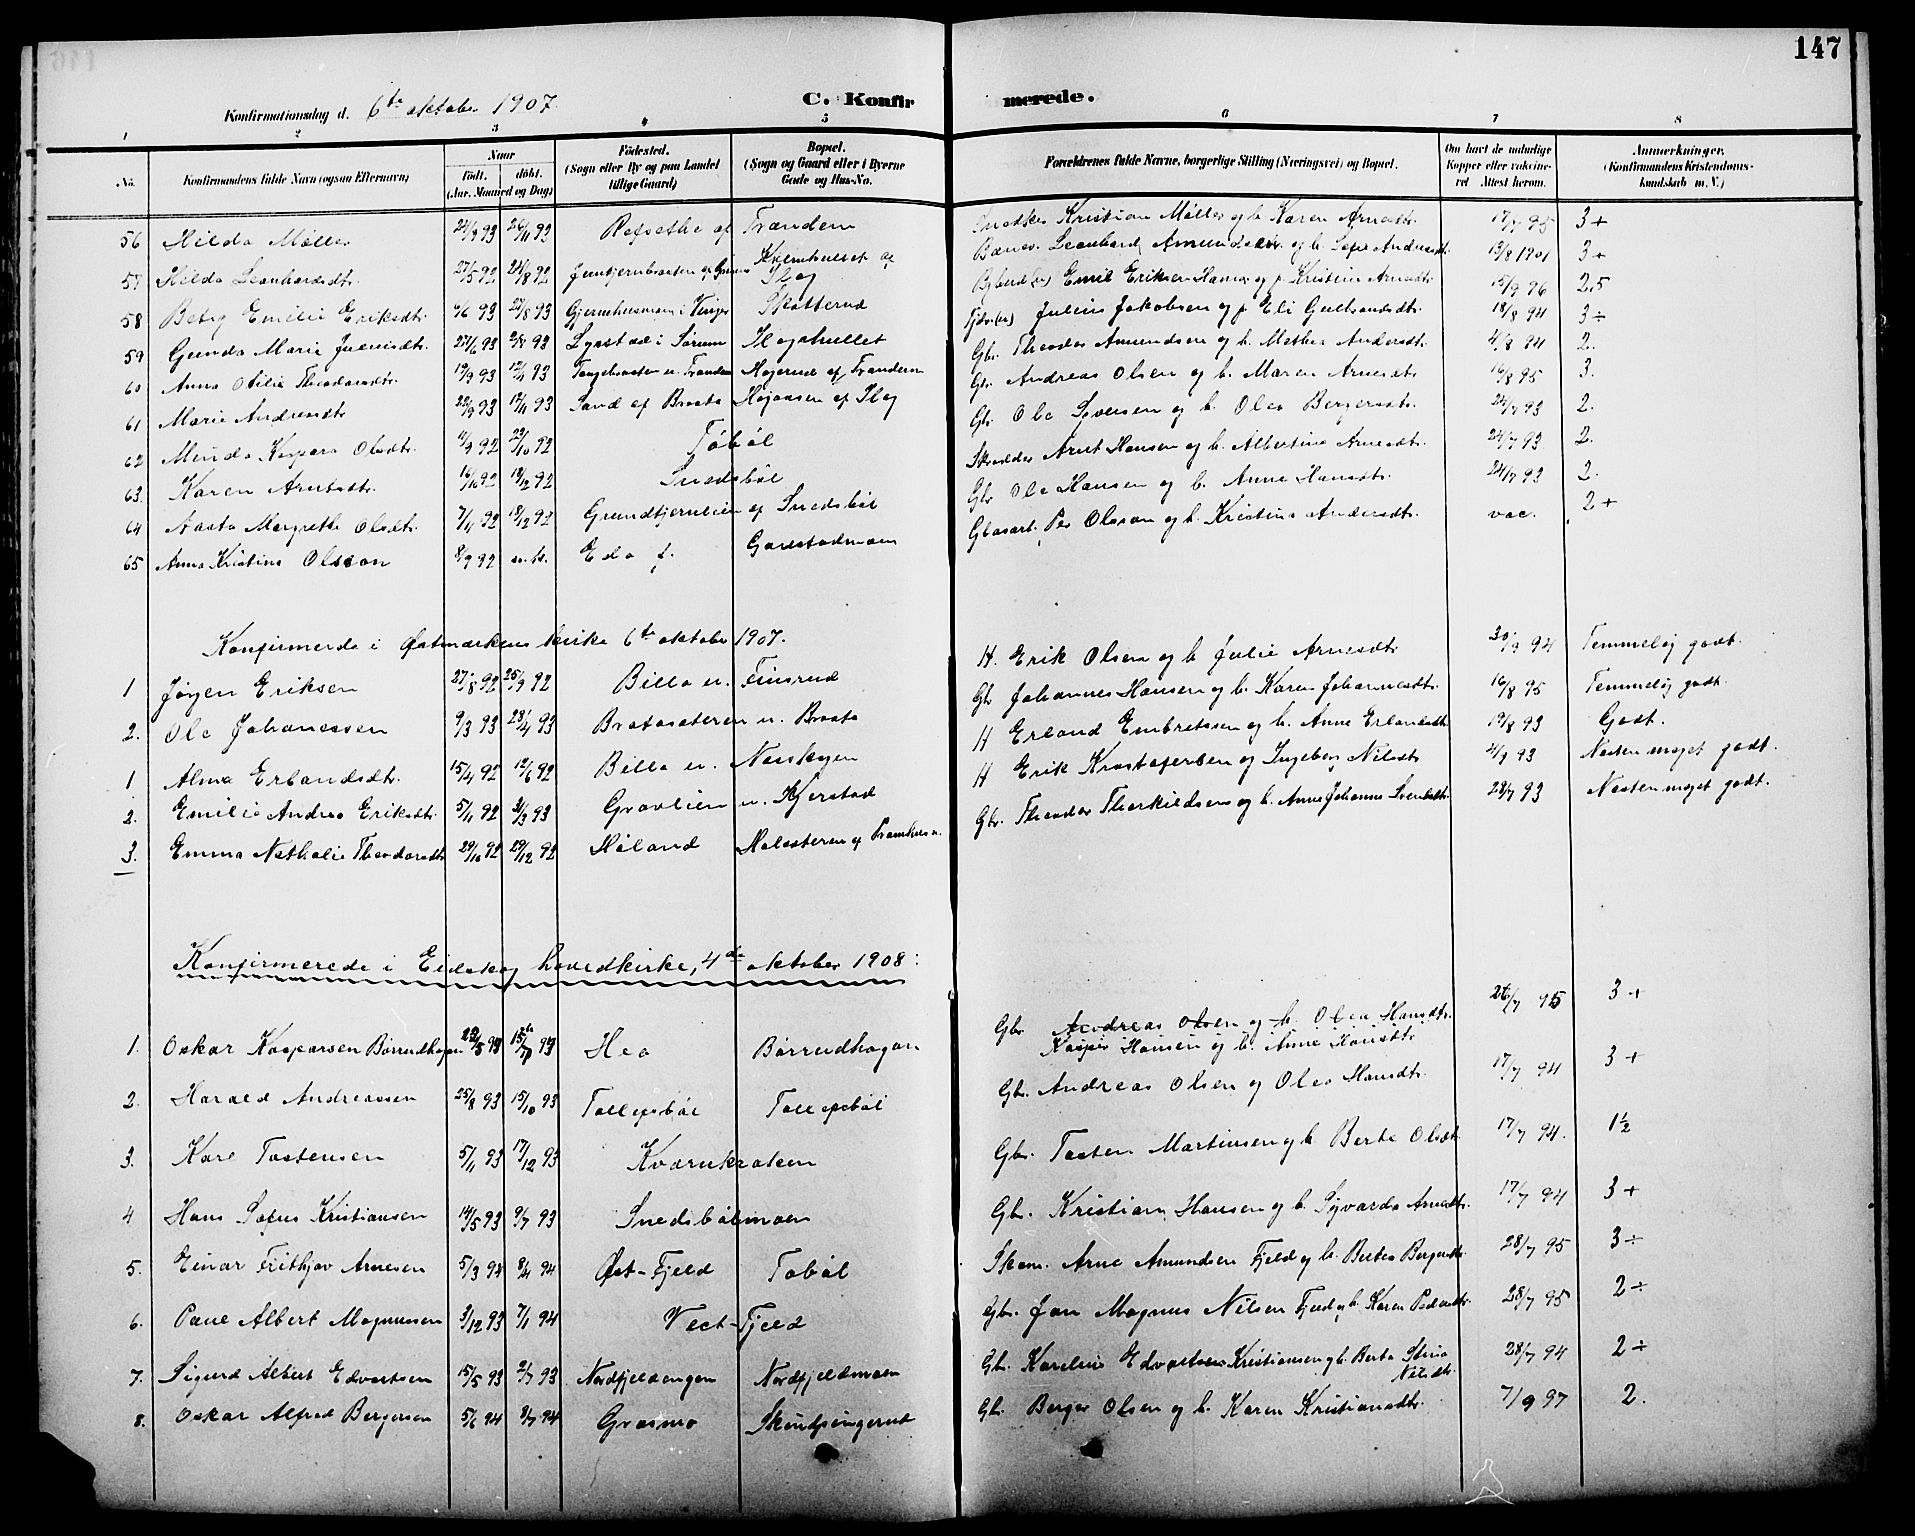 147
Konfirmationsdag d. 6te oktober 1907
C. Konfirmerede.
1 2 3 4 5 6 7 8
No. Konfirmandens fulde Navn (ogsaa Efternavn) Naar født. døbt. (Aar, Maaned og Dag) Fødested. (Sogn eller By og paa Landet tillige Gaard) Bopæl. (Sogn og Gaard eller i Byerne Gade og Hus-No. Forældrenes fulde Navne, borgerlige Stilling (Næringsvei) og Bopæl. Om havt de naturlige Kopper eller vaksineret. Attest herom. Anmerkninger. (Konfirmandens Kristendomskundskab m. V.)
56 Hilda Møller 24/9 93 26/11 93 Refsethe af Trandem Snedker Kristian Møller og h. Karen Arnesdtr. 17/7 95 3+
57 Hilda Leonhardsdtr. 27/5 92 21/8 92 Leonhard Amundsen og h. Andersdtr. 13/8 1901 3+
58 Betzy Emilie Eriksdtr. 6/6 93 27/8 93 i Vinger Skotterud Emil Eriksen og p. Kristine Arnesdtr. 15/9 96 2,5
59 Gunda Marie Juliusdtr. 27/6 93 i Sørum Skogshullet Julius Jakobsen og p. Eli Gulbrandsdtr. 18/8 94 3÷
60 Anna Otilie Theodorsdtr. 19/9 93 12/11 93 u. Trandem af Trandem Gbr. Theodor Amundsen og h. Mathea Andersdtr. 4/8 94 2.
61 Marie Andreasdtr. 22/9 93 12/11 93 Sand af Braata af Skog Gbr. Andreas Olsen og h. Maren Arnesdtr. 16/8 95 3.
62 Minda Kaspara Olsdtr. 11/9 92 22/10 92 Tøbøl Gbr. Ole Syversen og h. Olea Bergersdtr. 24/7 93 2.
63. Karen Arntsdtr. 16/10 92 18/12 92 Snedsbøl Skrædder Arnt Hansen og h. Albertine Arnesdtr. 24/7 93 2.
64 Aasta Margrethe Olsdtr. 7/11 92 18/12 92 Grundtjernlien af Snedsbøl Gbr. Ole Hansen og h. Anne Hansdtr. 24/7 93 2.
65 Anna Kristine Olsson 8/9 92 Eda f. Gaustadmoen Glasarb. Per Olsson og h. Kristine Andersdtr. vac. 2+
Konfirmerede i Østmarkens kirke 6te oktober 1907.
1 Jørgen Eriksen 27/8 92 25/9 92 Billa u. Finsrud H. Erik Olsen og h. Julie Arnesdtr. 30/9 94 Temmelig godt.
2. Ole Johannessen 9/3 93 23/4 93 Braatasæteren u. Braata Gbr Johannes Hansen og h. Karen Johannesdtr. 16/8 95 Temmelig godt.
1 Alma Erlandsdtr. 15/4 92 12/6 92 Billa u. H Erland Embretsen og h. Anne Erlandsdtr. 19/8 93 Godt.
2. Emilie Andrea Eriksdtr. 5/11 92 Gravlien u. H Erik Kristofersen og Ingeborg Nilsdtr. 21/9 93 Næsten meget godt.
3. Emma Nathalie Theodorsdtr. 29/10 92 29/12 92 Høland Gbr. Theodor Thorkildsen og h. Anne Johanne Svendsdtr. 28/7 93 Næsten meget godt.
Konfirmerede i Eidskog hovedkirke, 4de oktober 1908:
1. Oskar Kaspersen Børrudhagen 93 93 Hea Børrudhagen Gbr Andreas Olsen og h. Olea Hansdtr. 26/7 95 3+
Kasper Hansen og h. Anne Hansdtr.
2. Harald Andreassen 25/8 93 15/10 93 Tollefsbøl Tollefsbøl Gbr. Andreas Olsen og Olea Hansdtr. 17/7 94 3+
3. Kare Tostensen 5/11 93 17/12 93 Kværnkroken Gbr. Tosten Martinsen og h. Berte Olsdt 17/7 94. 1½
4 Hans Sofus Kristiansen 14/5 93 9/7 93 Snedsbølmoen Gbr. Kristian Hansen og h. Syvarda Arnesdtr. 17/7 94 3+
5. Einar Frithjov Arnesen 5/3 94 8/4 94 Øst-Fjeld Tøbøl Skom. Arne Amundsen Fjeld og h. Bertea Bergersdtr. 28/7 95 3÷
6. Paul Albert Magnussen 3/12 93 7/1 94 Vest-Fjeld Gbr. Jon Magnus Nilsen Fjeld og h. Karen Pedersdtr. 28/7 95 2÷
7. Sigurd Albert Edvartsen 15/5 93 2/7 93 Nordfjeldengen Nordfjeldmoen Gbr. Karelius Edvartsen Kristiansen og h. Berta Stina Nilsdtr. 28/7 94 2÷
8. Oskar Alfred Bergersen 5/6 94 8/7 94 Grasmo Gbr. Berger Olsen og h. Karen Kristiansdtr. 7/9 97 2.